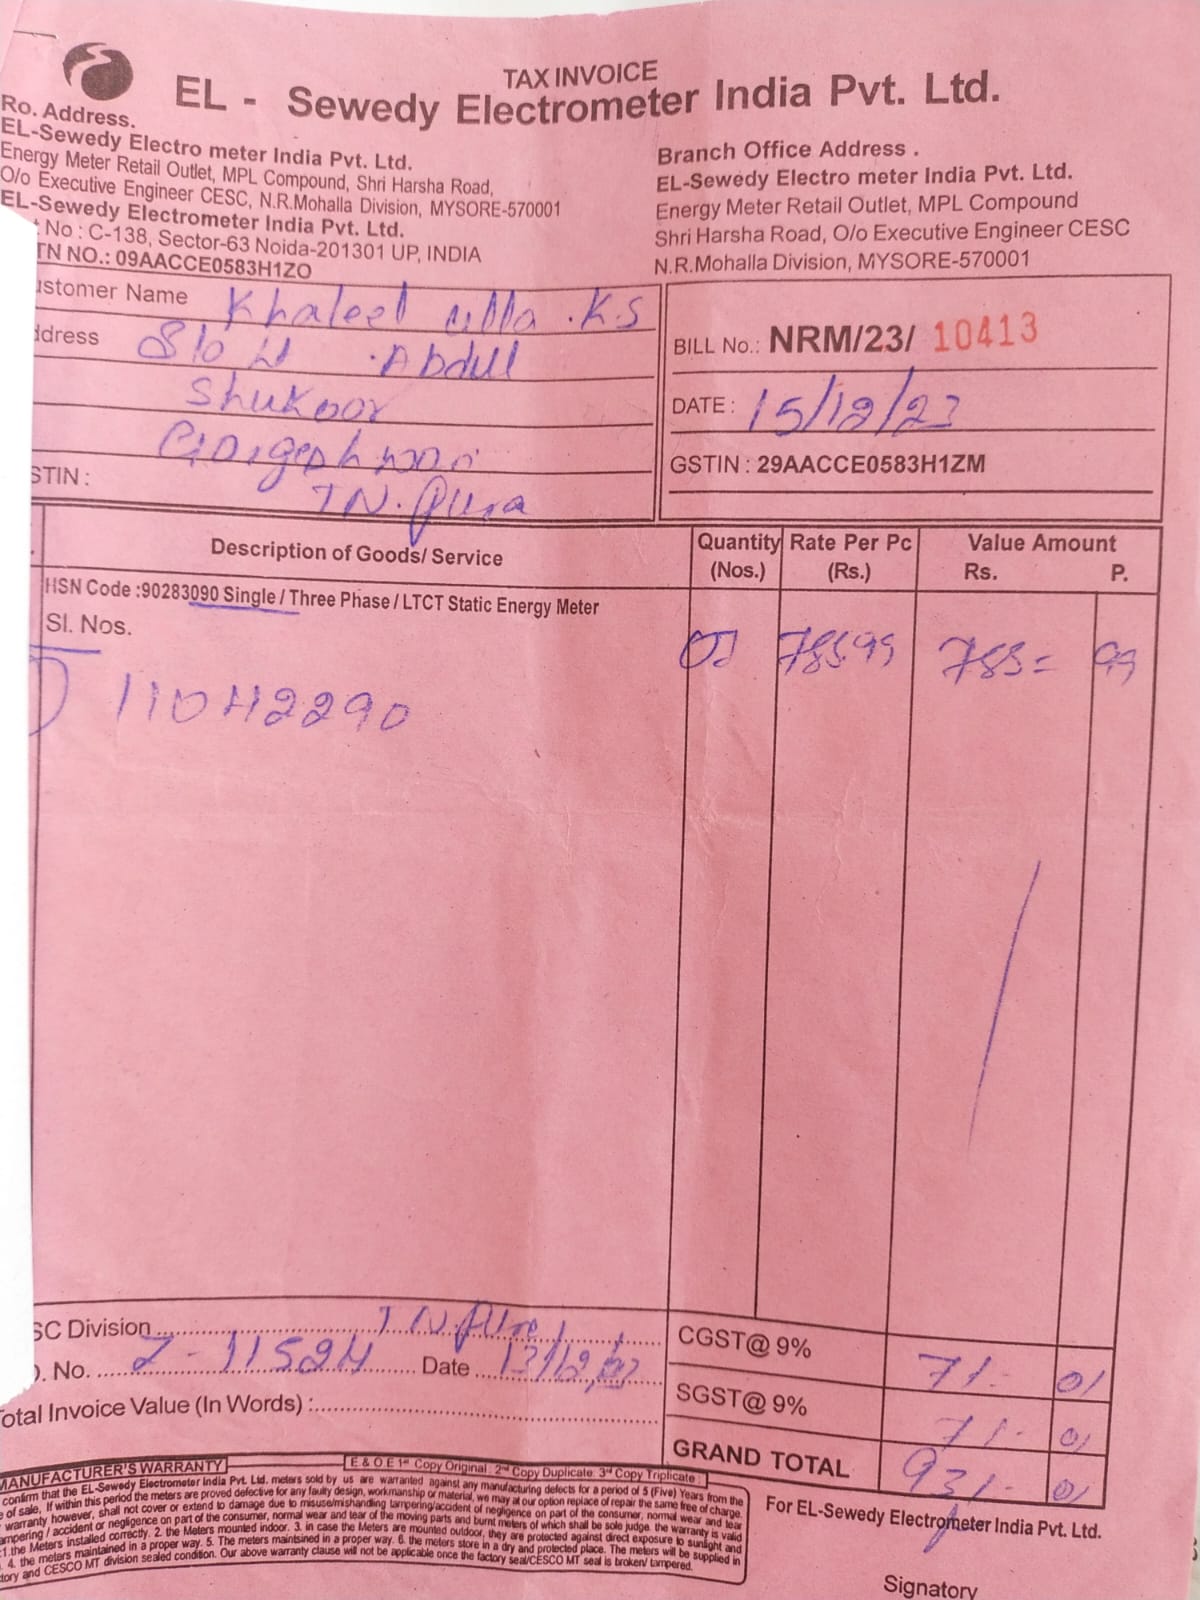 TAX INVOICE
EL - Sewedy Electrometer India Pvt. Ltd.
Ro. Address.
EL-Sewedy Electro meter India Pvt. Ltd.
Energy Meter Retail Outlet, MPL Compound, Shri Harsha Road,
O/o Executive Engineer CESC, N.R.Mohalla Division, MYSORE-570001
EL-Sewedy Electrometer India Pvt. Ltd.
No : C-138, Sector-63 Noida-201301 UP, INDIA
TN NO.: 09AACCE0583H1ZO
Branch Office Address .
EL-Sewedy Electro meter India Pvt. Ltd.
Energy Meter Retail Outlet, MPL Compound
Shri Harsha Road, O/o Executive Engineer CESC
N.R.Mohalla Division, MYSORE-570001
ustomer Name Khaleel ulla .K.S
ddress S/o Abdul
Shukoor
STIN :
T N. Pura
BILL No.: NRM/23/ 10413
DATE : 15/12/23
GSTIN : 29AACCE0583H1ZM
Description of Goods/ Service Quantity (Nos.) Rate Per Pc (Rs.) Value Amount Rs. P.
HSN Code :90283090 Single / Three Phase / LTCT Static Energy Meter
Sl. Nos.
11042290
SC Division T N. Pura
. No. 2-11524 Date
otal Invoice Value (In Words) :
CGST@ 9% 71- 01
SGST@ 9% 71- 01
GRAND TOTAL 931- 01
E & O E 1st Copy Original 2nd Copy Duplicate 3rd Copy Triplicate
MANUFACTURER'S WARRANTY
confirm that the EL-Sewedy Electrometer India Pvt. Ltd. meters sold by us are warranted against any manufacturing defects for a period of 5 (Five) Years from the
e of sale. If within this period the meters are proved defective for any faulty design, workmanship or material, we may at our option replace of repair the same free of charge.
warranty however, shall not cover or extend to damage due to misuse/mishandling tampering/accident of negligence on part of the consumer, normal wear and tear
ampering / accident or negligence on part of the consumer, normal wear and tear of the moving parts and burnt meters of which shall be sole judge. the warranty is valid
1.the Meters Installed correctly. 2. the Meters mounted indoor. 3. in case the Meters are mounted outdoor, they are protected against direct exposure to sunlight and
4. the meters maintained in a proper way. 5. The meters maintsined in a proper way. 6. the meters store in a dry and protected place. The meters will be supplied in
tory and CESCO MT division sealed condition. Our above warranty clause will not be applicable once the factory seal/CESCO MT seal is broken/ tampered.
For EL-Sewedy Electrometer India Pvt. Ltd.
Signatory